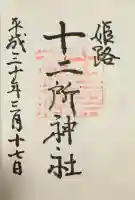 姫路
十二所神社
平成三十年三月十七日